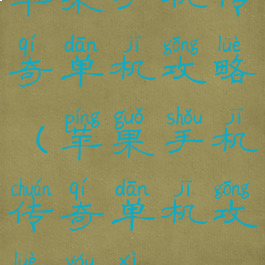 苹果手机传
qí dān jī gōng lüè
奇单机攻略
píng guǒ shǒu jī
（苹果手机
chuán qí dān jī gōng
传奇单机攻
lüè yóu xì